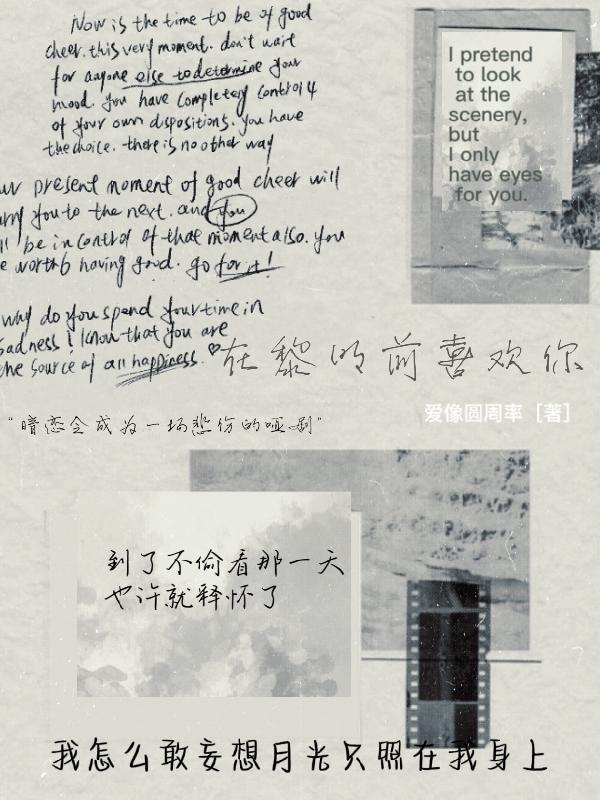 Now is the time to be of good
cheer. this very moment. don't wait
for anyone else to determine your
mood. you have completely control
of your own dispositions. you have
the choice. there is no other way
ur present moment of good cheer will
arry you to the next. and you
ll be in control of that moment also. you
e worth having good. go for it!
why do you spend your time in
sadness! know that you are
the source of all happiness. ♡
I pretend
to look
at the
scenery,
but
I only
have eyes
for you.
在黎明前喜欢你
爱像圆周率 [著]
"暗恋会成为一场悲伤的哑剧"
到了不偷看那一天
也许就释怀了
我怎么敢妄想月光只照在我身上